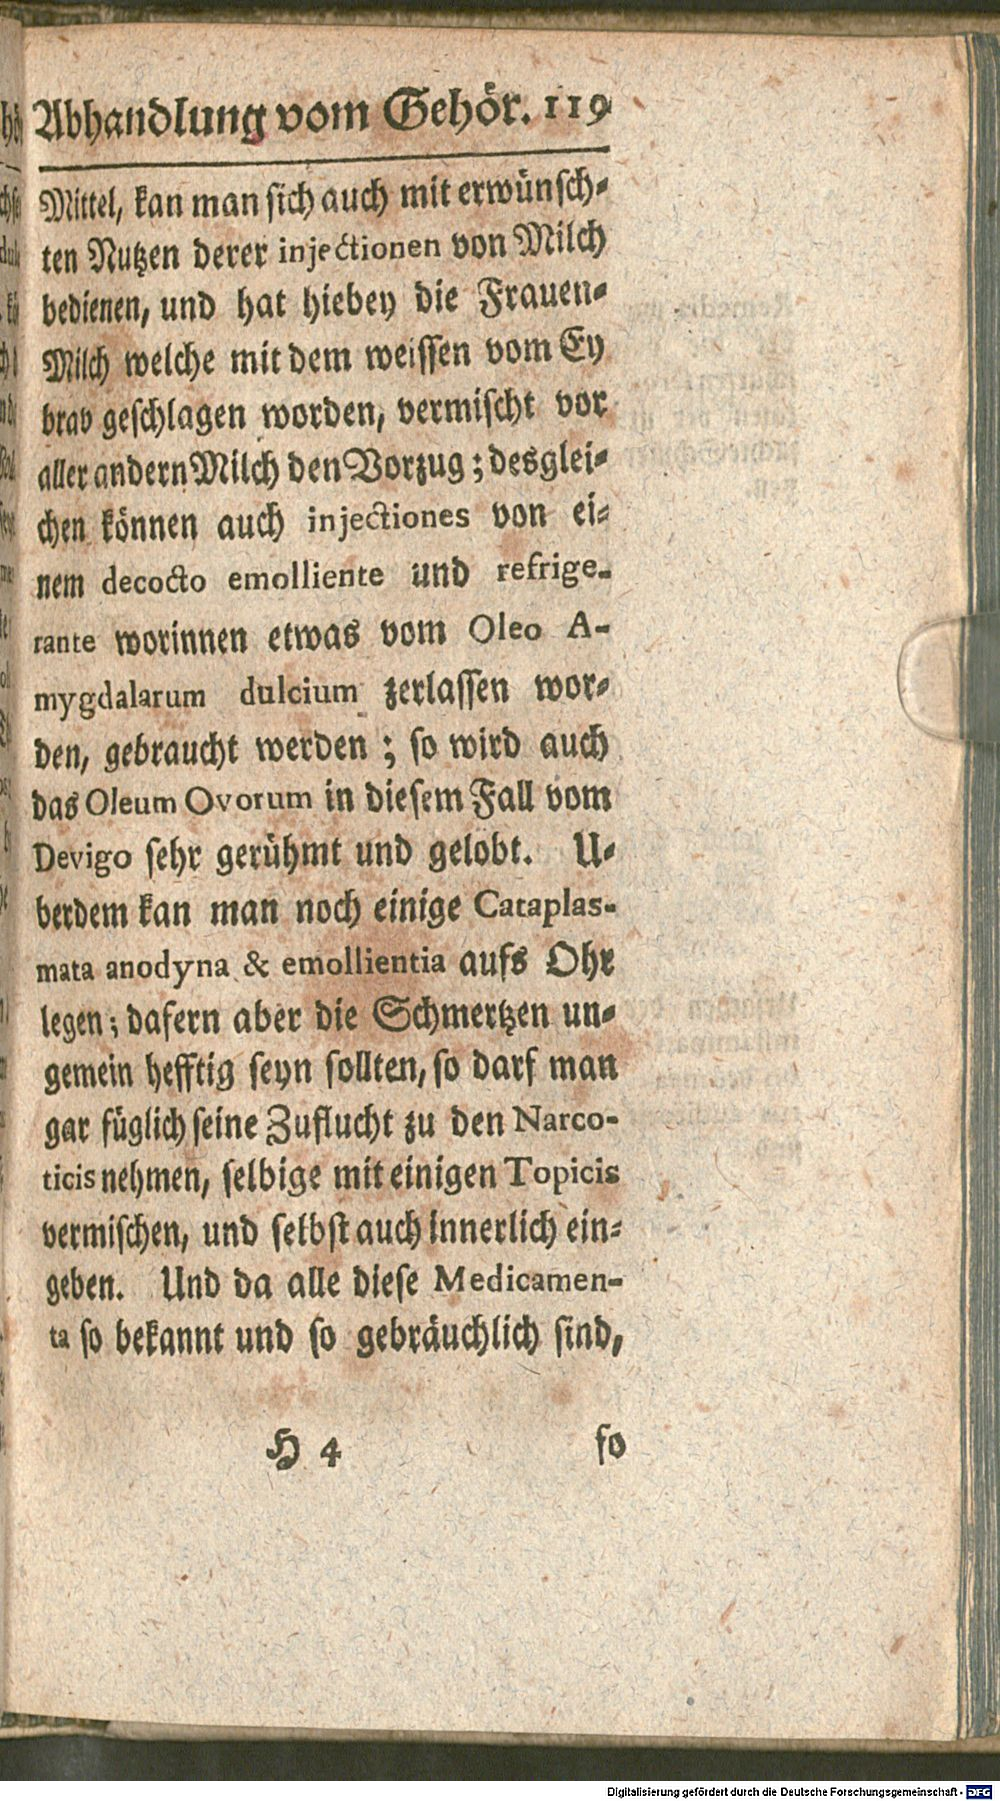 Abhandlung vom Gehör. 119
Mittel, kan man sich auch mit erwünsch-
ten Nutzen derer injectionen von Milch
bedienen, und hat hiebey die Frauen-
Milch welche mit dem weissen vom Ey
brav geschlagen worden, vermischt vor
aller andern Milch den Vorzug; desglei-
chen können auch injectiones von ei-
nem decocto emolliente und refrige-
rante worinnen etwas vom Oleo A-
mygdalarum dulcium zerlassen wor-
den, gebraucht werden; so wird auch
das Oleum Ovorum in diesem Fall vom
Devigo sehr gerühmt und gelobt. U-
berdem kan man noch einige Cataplas-
mata anodyna & emollientia aufs Ohr
legen; dafern aber die Schmertzen un-
gemein hefftig seyn sollten, so darf man
gar füglich seine Zuflucht zu den Narco-
ticis nehmen, selbige mit einigen Topicis
vermischen, und selbst auch innerlich ein-
geben. Und da alle diese Medicamen-
ta so bekannt und so gebräuchlich sind,
H 4 so
Digitalisierung gefördert durch die Deutsche Forschungsgemeinschaft - DFG